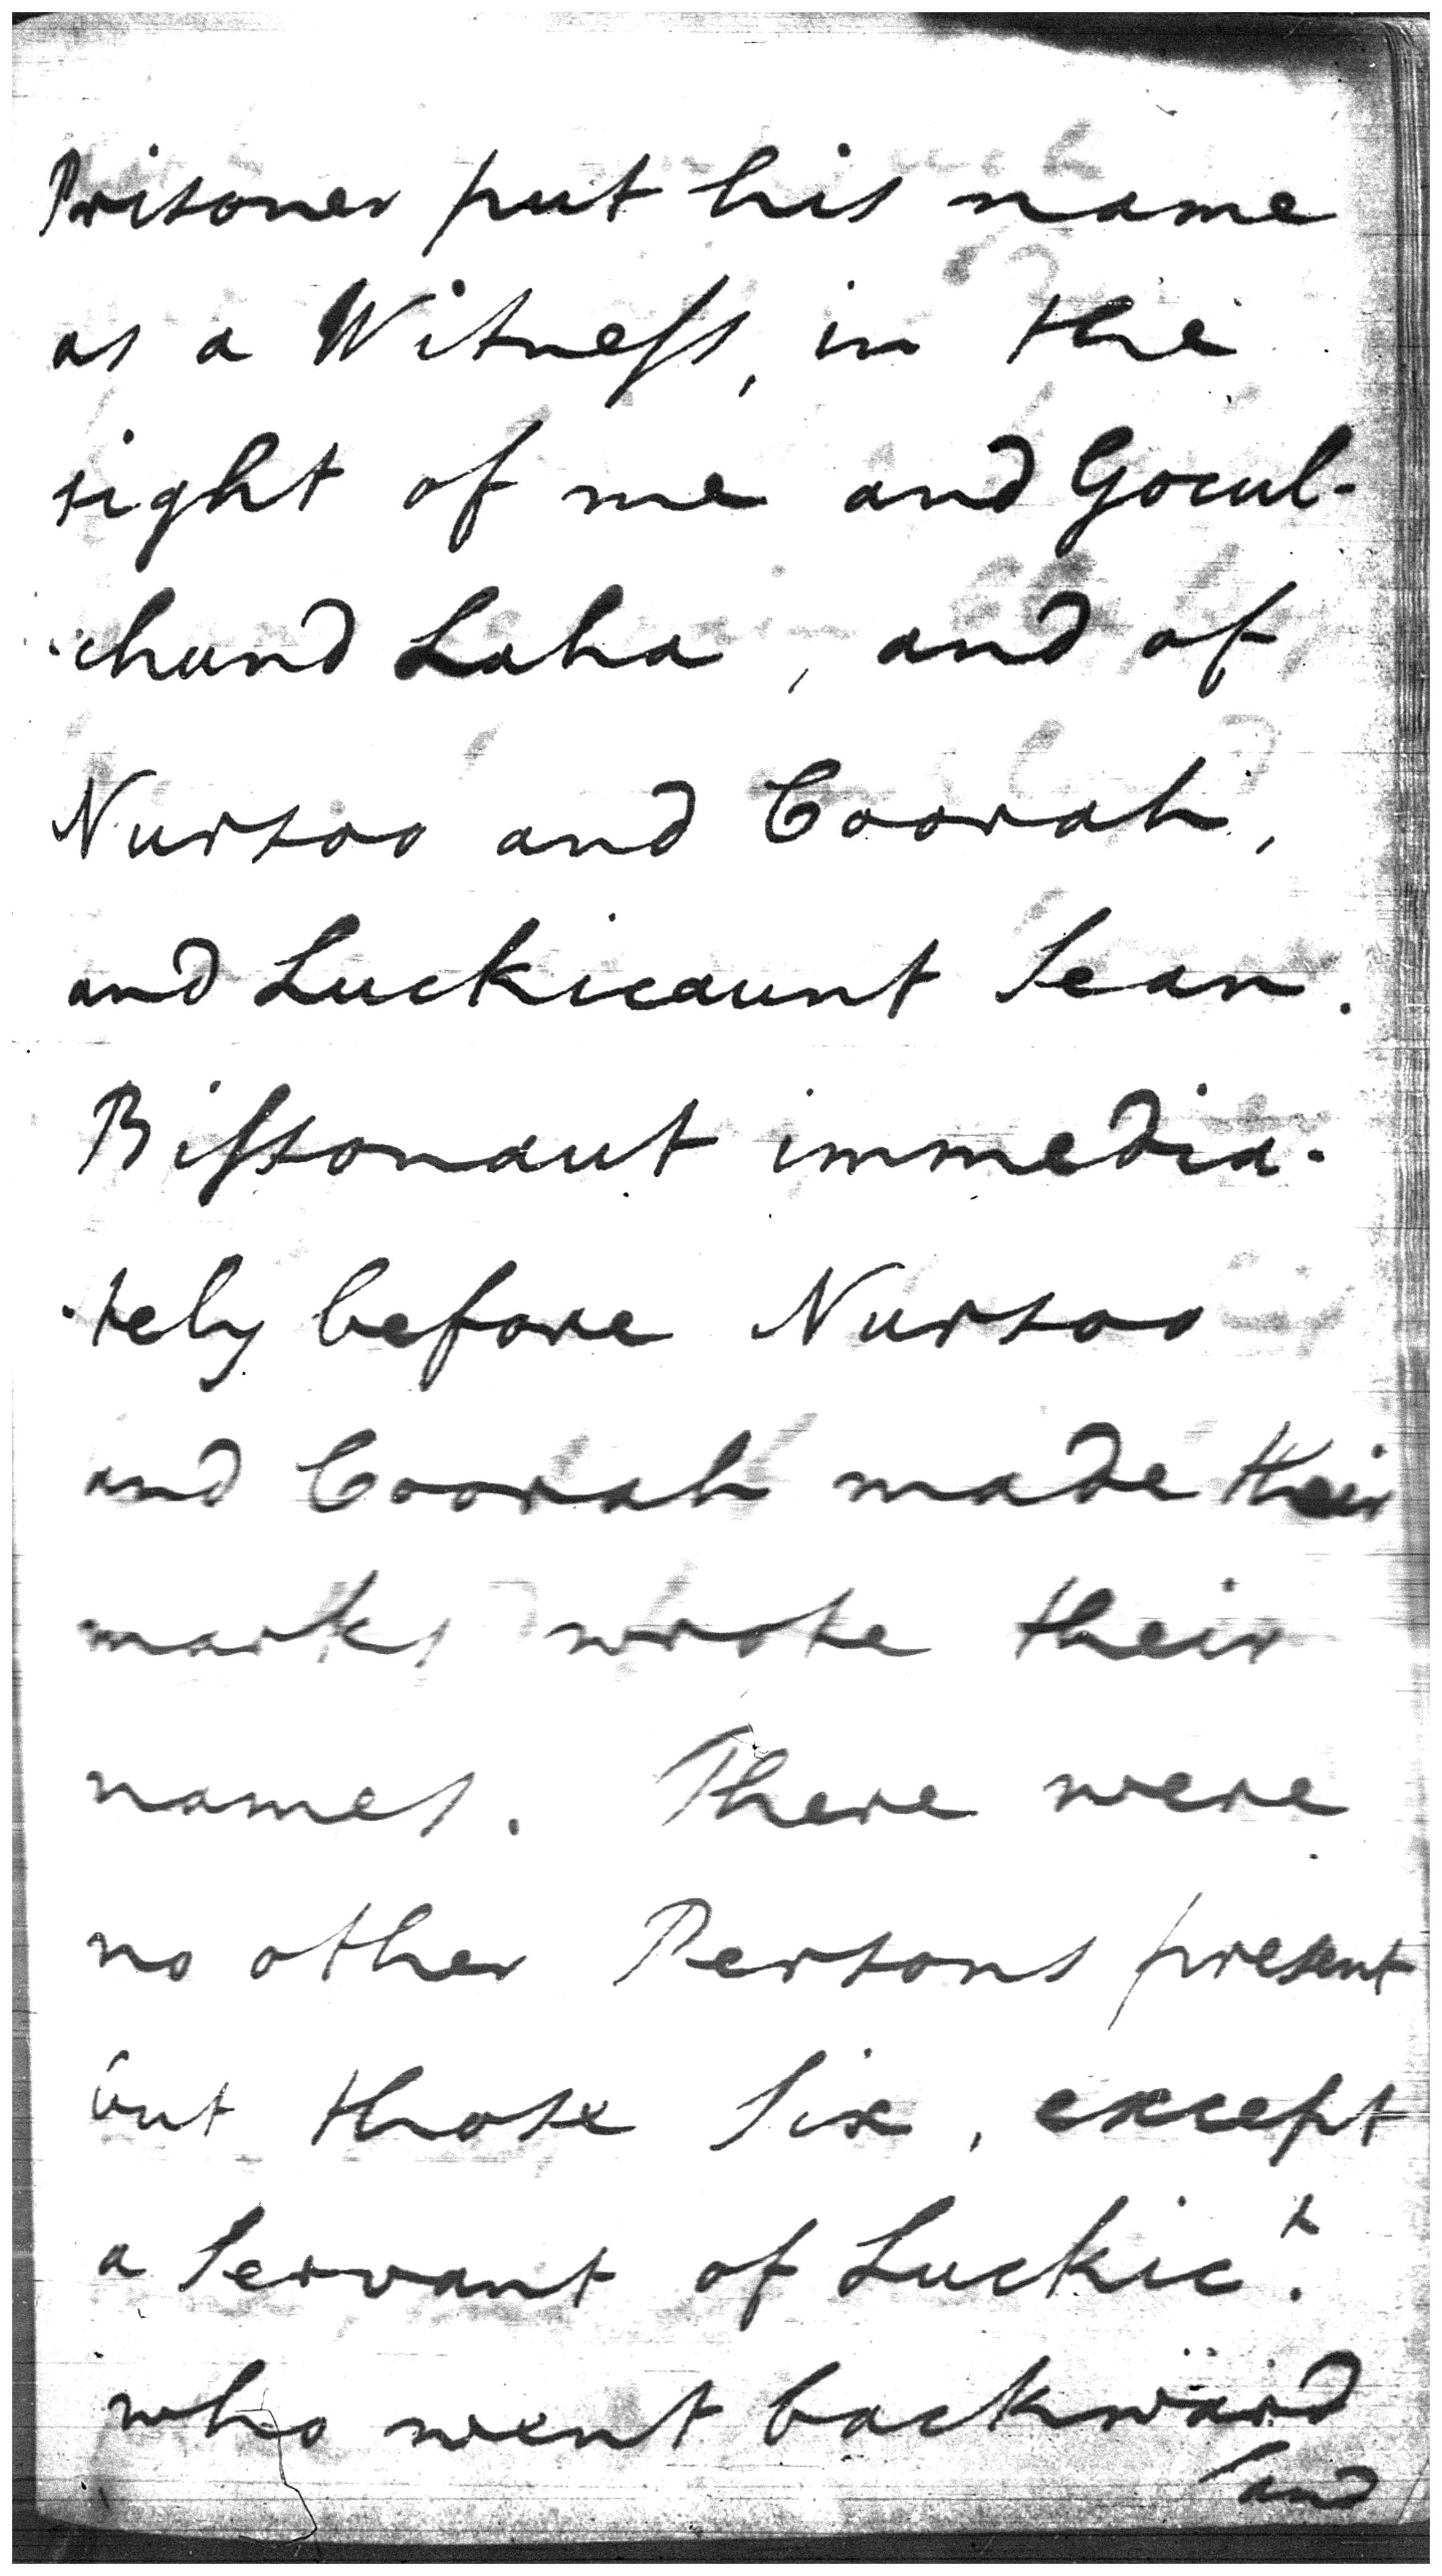 Prisoner put his name
as a Witneſs, in the
sight of me and Gocul-
-chund Laha, and of
Nursoo and Coorah,
and Luckicaunt Sean.
Biſsonaut immedia-
-tely before Nursoo
and Coorah made their
marks wrote their
names. There were
no other Persons present
but those Six, except
a Servant of Luckic.t
who went backward
and